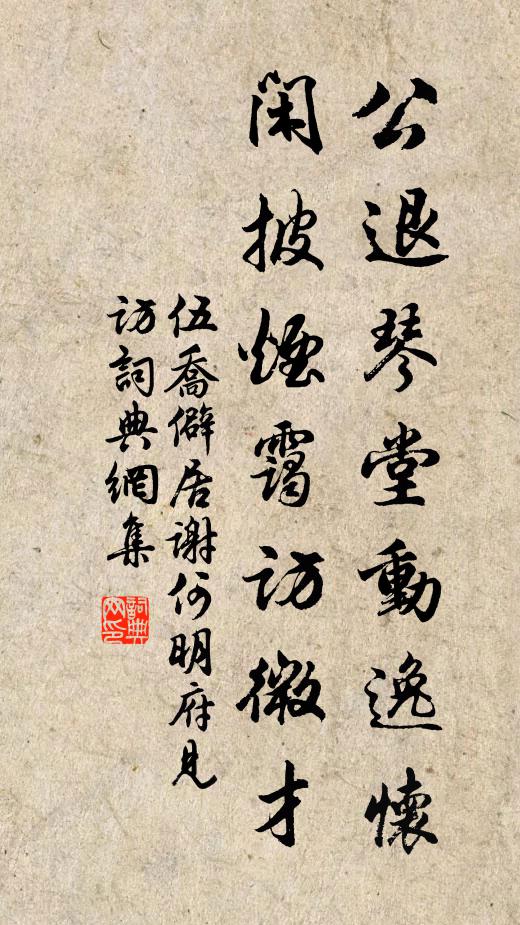 公退琴堂動逸懷
閑披煙靄訪微才
伍喬僻居謝何明府見
訪詞典網集
詞典
网印